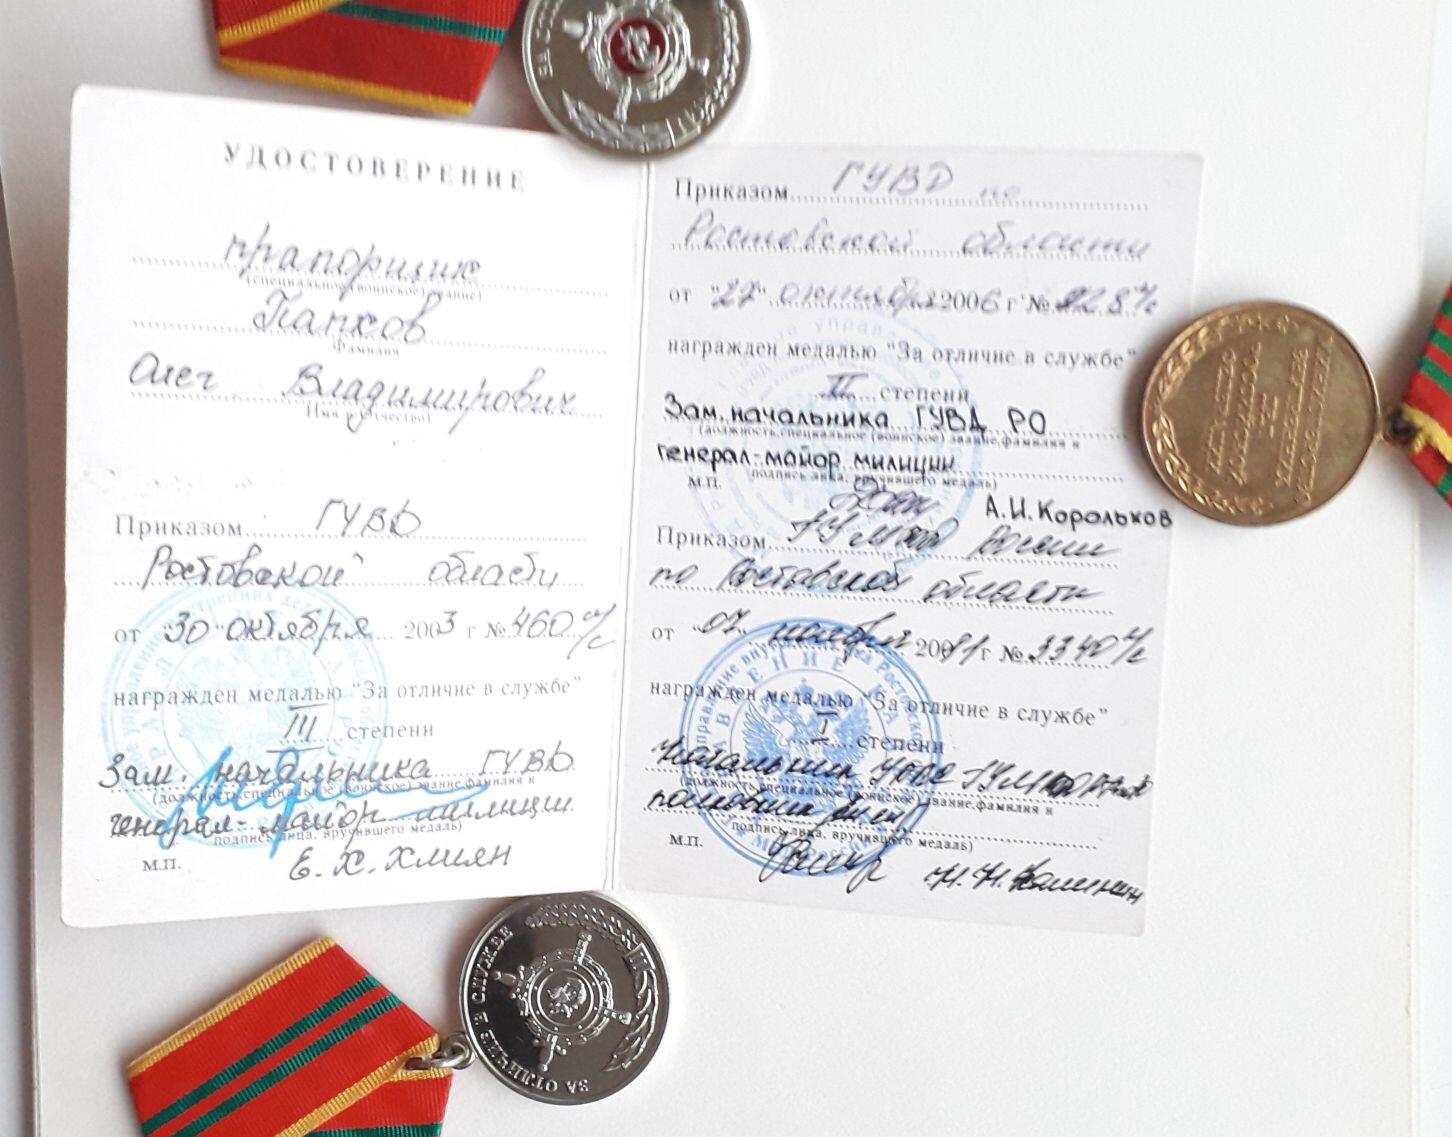 УДОСТОВЕРЕНИЕ
прапорщик
(специальное (воинское) звание)
Папков
Фамилия
Олег Владимирович
Имя и отчество)
Приказом ГУВД
Ростовской области
от "30" октября 2003 г № 460 л/с
награжден медалью "За отличие в службе"
III степени
Зам. начальника ГУВД
(должность,специальное (воинское) звание,фамилия и
генерал-майор милиции
подпись лица, вручившего медаль)
М.П.
Е. Х. Хмиян
Приказом ГУВД по
Ростовской области
от "27" октября 2006 г № 828 л/с
награжден медалью "За отличие в службе"
II степени
Зам. начальника ГУВД РО
(должность,специальное (воинское) звание,фамилия и
генерал-майор милиции
подпись лица, вручившего медаль)
М.П.
А.И. Корольков
Приказом ГУ МВД России
по Ростовской области
от "07" ноября 2011 г № 3340 л/с
награжден медалью "За отличие в службе"
I степени
Начальник ГУ МВД
(должность,специальное (воинское) звание,фамилия и
полковник
подпись лица, вручившего медаль)
М.П.
Н. Н. Калинин
ЗА ОТЛИЧИЕ В СЛУЖБЕ
II